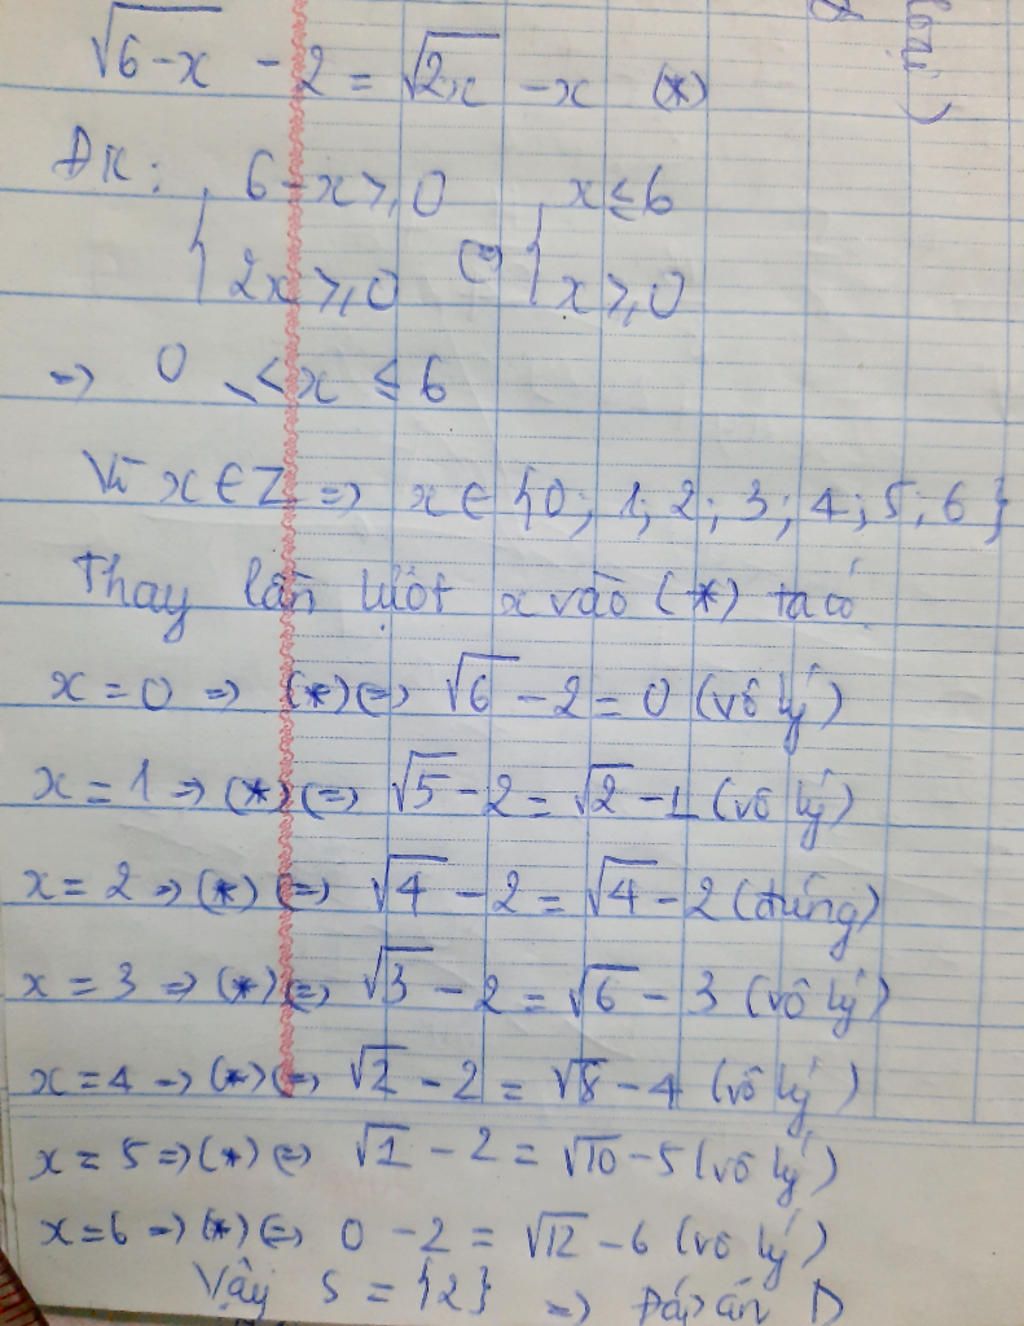 loại)
√6-x - 2 = √2x - x (*)
ĐK: { 6-x ≥ 0 (=) { x ≤ 6
2x ≥ 0 x ≥ 0
=> 0 ≤ x ≤ 6
Vì x ∈ Z => x ∈ {0; 1; 2; 3; 4; 5; 6}
Thay lần lượt x vào (*) ta có
x = 0 => (*) (=) √6 - 2 = 0 (vô lý)
x = 1 => (*) (=) √5 - 2 = √2 - 1 (vô lý)
x = 2 => (*) (=) √4 - 2 = √4 - 2 (đúng)
x = 3 => (*) (=) √3 - 2 = √6 - 3 (vô lý)
x = 4 => (*) (=) √2 - 2 = √8 - 4 (vô lý)
x = 5 => (*) (=) √1 - 2 = √10 - 5 (vô lý)
x = 6 => (*) (=) 0 - 2 = √12 - 6 (vô lý)
Vậy S = {2} => Đáp án D